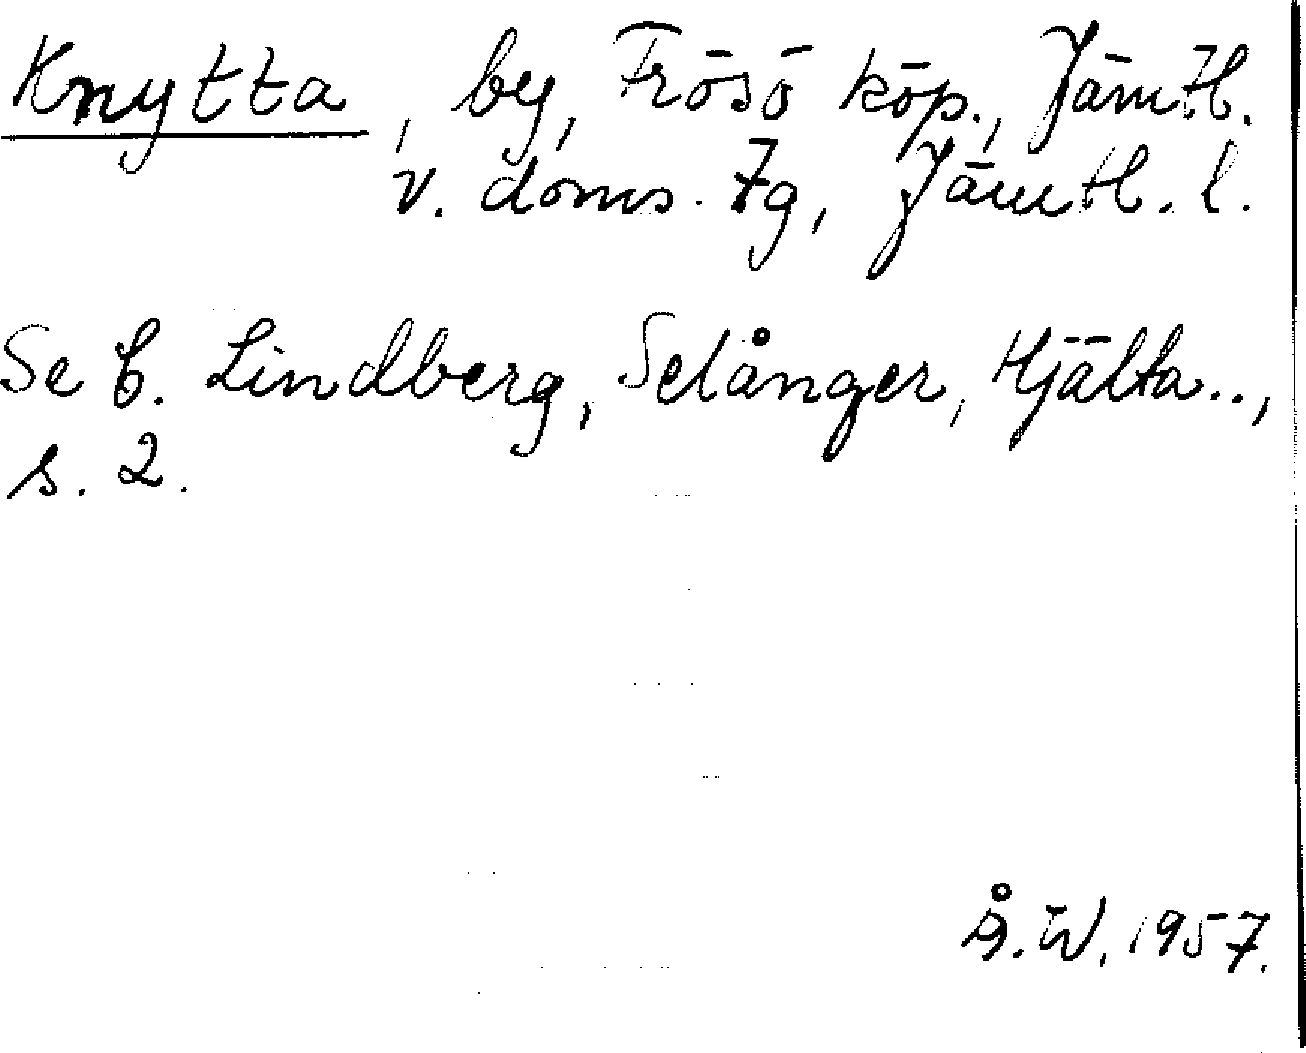 Knytta, by, Frösö köp., Jämtl.
v. doms. 7g, Jämtl. l.
Se C. Lindberg, Selånger, Hjälta..,
s. 2.
Å.W. 1957.